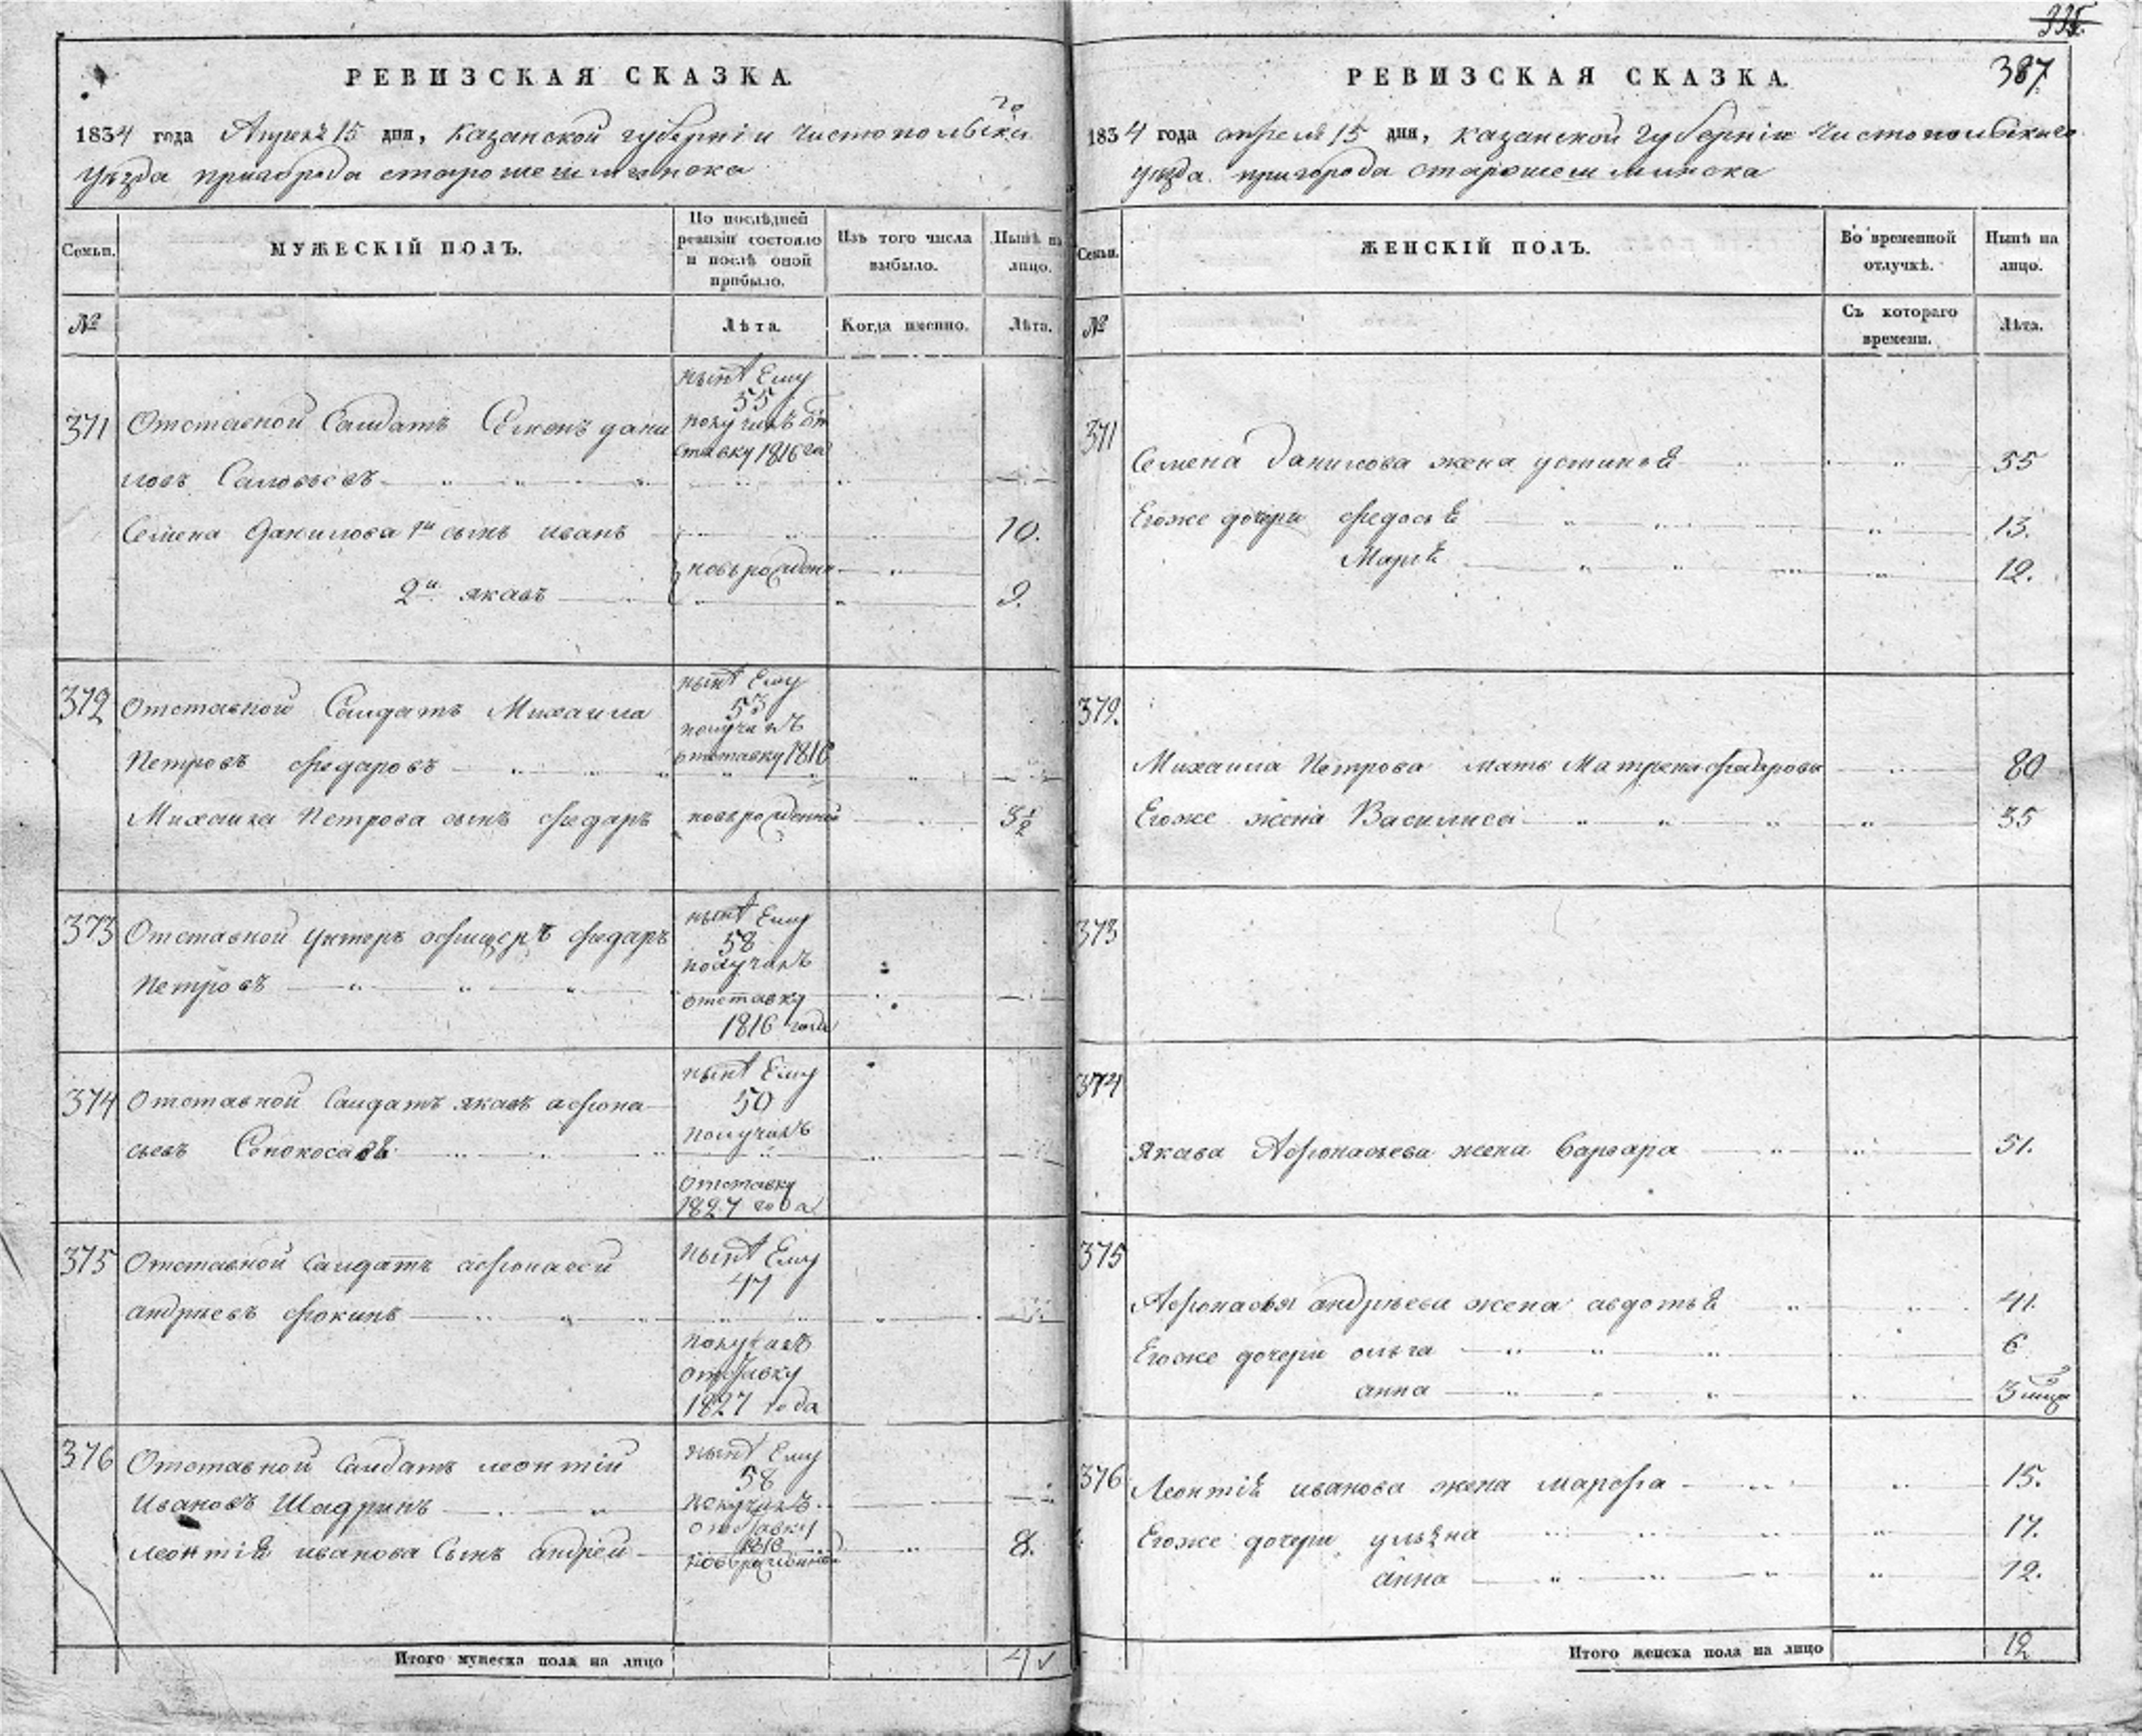 РЕВИЗСКАЯ СКАЗКА.
1834 года Апреля 15 дня, Казанской губернiи Чистопольска го
уѣзда пригорода старошешминска
Семьи.
МУЖЕСКІЙ ПОЛЪ.
По послѣдней
ревизіи состояло
и послѣ оной
прибыло.
Изъ того числа
выбыло.
Нынѣ на
лицо.
№
Лѣта.
Когда именно.
Лѣта.
нынѣ Ему
55
371 Отставной Салдатъ Семенъ дани получилъ от
ставку 1816 го
ловъ Саловьевъ
Семена Данилова 1й сынъ иванъ 10.
новърожден
2й яковъ 9.
нынѣ Ему
53
372 Отставной Салдатъ Михаила получилъ
Петровъ Федаровъ отставку 1816
Михаила Петрова сынъ федаръ новърожденной 3 1/2
нынѣ Ему
58
373 Отставной Унтеръ офицеръ федаръ получилъ
Петровъ отставку
1816 года
нынѣ Ему
50
374 Отставной Салдатъ яковъ афона получилъ
сьевъ
отставку
1827 года
375 Отставной Салдатъ афонасей нынѣ Ему
47
андрѣевъ фокинъ
получилъ
отставку
1827 года
376 Отставной Салдатъ леонтiй нынѣ Ему
58
Ивановъ Шадринъ получилъ
отставку
1816
леонтiя иванова Сынъ андрей новърожденной 8.
Итого мужеска пола на лицо 4
335.
РЕВИЗСКАЯ СКАЗКА. 387
1834 года апреля 15 дня, Казанской Губернiи Чистопольскаго
уѣзда пригорода старошешминска
Семьи.
ЖЕНСКІЙ ПОЛЪ.
Во временной
отлучкѣ.
Нынѣ на
лицо.
№
Съ котораго
времени.
Лѣта.
371
Семена Данилова жена устинья 55
Егоже дочери федосья 13.
Марья 12.
372.
Михаила Петрова мать Матрена федарова 80
Егоже жена Василиса 35
373
374
Якава Афонасьева жена варвара 51.
375
Афонасья андрѣева жена авдотья 41.
Егоже дочери ольга 6
анна 3
376 Леонтiя иванова жена марфа 15.
Егоже дочери ульяна 17.
анна 12.
Итого женска пола на лицо 12